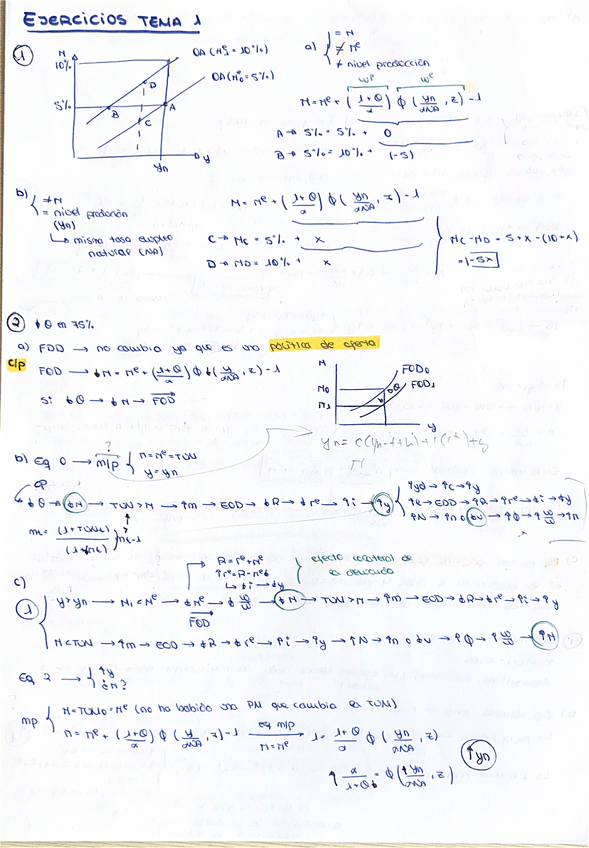 EJERCICIOS TEMA 1
1
π
10%
5%
OA (π₁ᵉ = 10%)
OA (π₀ᵉ = 5%)
D
B
A
C
yn
y
a) = π
≠ πᵉ
≠ nivel producción
wᵉ wᵉ
π = πᵉ + (1+θ / α) φ (yn / αNA, z) - 1
A → 5% = 5% + 0
B → 5% = 10% + (-5)
b) ≠ π
= nivel producción
(yn)
↳ misma tasa empleo
natural (NA)
π = πᵉ + (1+θ / α) φ (yn / αNA, z) - 1
C → πc = 5% + x
D → πD = 10% + x
πc - πD = 5 + x - (10+x)
= -5
2 ↓ θ en 75%
a) FOD → no cambia ya que es una política de oferta
c/p FOD → ↓π = πᵉ + (1+θ / α) φ (y / αNA, z) - 1
Si ↓θ → ↓π → FOD
π
π0
π1
FOD0
FOD1
↓θ
y
yn = c(yn-t+h) + i(rᵉ) + g
π
b) Eq 0 → m/p π = πᵉ = TCN
y = yn
?
CP
↓θ → ↓π → TCN > π → ↑m → EOD → ↓R → ↓rᵉ → ↑i → ↑y
↑yd → ↑c → ↑y
↑N → ↑n o ↓u → ↑φ → ↑ w/w → ↑π
mt = (1+TCNt) / (1+πt) mt-1
c)
R = rᵉ + πᵉ
↑rᵉ = R - πᵉ↓
↳ ↓i → ↓y
efecto colateral de la demanda
1 y > yn → π₁ < πᵉ → ↓πᵉ → ↓ w/w → ↓π → TCN > π → ↑m → EOD → ↓R → ↓rᵉ → ↑i → ↑y
FOD
π < TCN → ↑m → EOD → ↓R → ↓rᵉ → ↑i → ↑y → ↑N → ↑n o ↓u → ↑φ → ↑ w/w → ↑π
Eq 2 → ↑y
¿π?
mp π = TCN0 = πᵉ (no ha habido una PM que cambia la TCN)
π = πᵉ + (1+θ / α) φ (y / αNA, z) - 1 → eq m/p π = πᵉ 1 = 1+θ / α φ (yn / αNA, z)
↑ α / 1+θ↓ = φ (↑yn / αNA, z)
↑yn